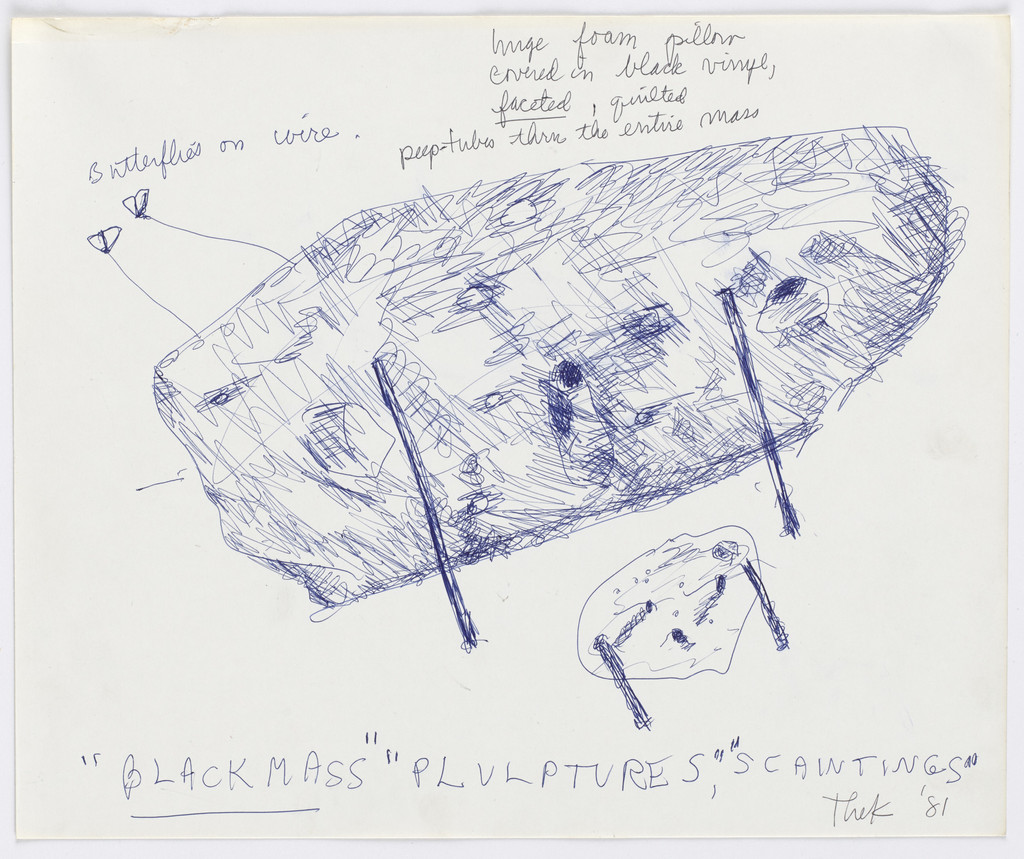 huge foam pillow
covered in black vinyl,
faceted, quilted
peep-tubes thru the entire mass
Butterflies on wire.
"BLACK MASS" "PLULPTURES," "SCAINTINGS"
Thek '81